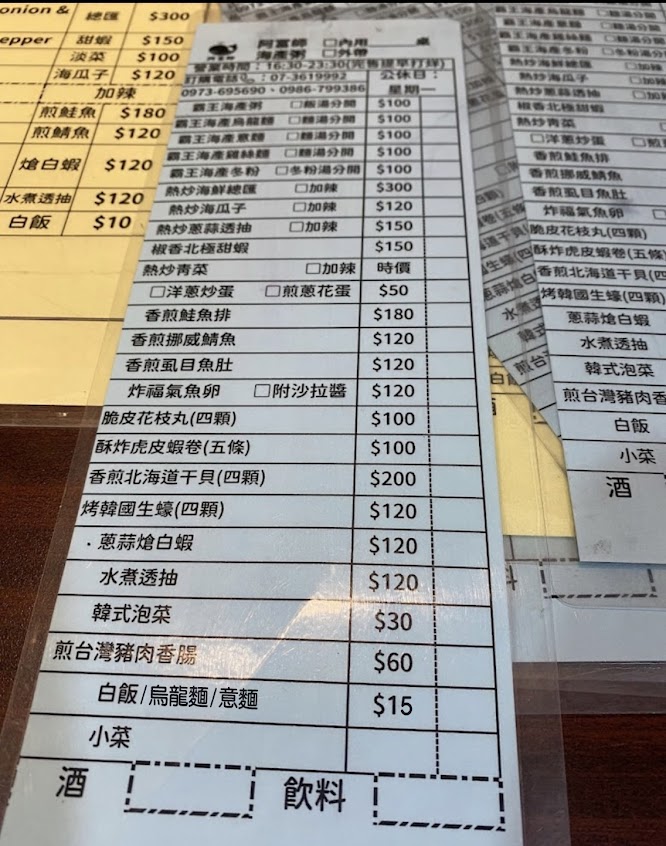 onion &
總匯 $300
epper 甜蝦 $150
淡菜 $100
海瓜子 $120
加辣
煎鮭魚 $180
煎鯖魚 $120
熗白蝦 $120
水煮透抽 $120
白飯 $10
阿富師 □內用 桌
海產粥 □外帶
營業時間：16:30-23:30(完售提早打烊)
訂購電話：07-3619992 公休日：
0973-695690、0986-799386 星期一
霸王海產粥 □飯湯分開 $100
霸王海產烏龍麵 □麵湯分開 $100
霸王海產意麵 □麵湯分開 $100
霸王海產雞絲麵 □麵湯分開 $100
霸王海產冬粉 □冬粉湯分開 $100
熱炒海鮮總匯 □加辣 $300
熱炒海瓜子 □加辣 $120
熱炒蔥蒜透抽 □加辣 $150
椒香北極甜蝦 $150
熱炒青菜 □加辣 時價
□洋蔥炒蛋 □煎蔥花蛋 $50
香煎鮭魚排 $180
香煎挪威鯖魚 $120
香煎虱目魚肚 $120
炸福氣魚卵 □附沙拉醬 $120
脆皮花枝丸(四顆) $100
酥炸虎皮蝦卷(五條) $100
香煎北海道干貝(四顆) $200
烤韓國生蠔(四顆) $120
蔥蒜熗白蝦 $120
水煮透抽 $120
韓式泡菜 $30
煎台灣豬肉香腸 $60
白飯/烏龍麵/意麵 $15
小菜
酒 飲料
熱炒海瓜子
熱炒蔥蒜透抽
椒香北極甜蝦
熱炒青菜
□洋蔥炒蛋
香煎鮭魚排
香煎挪威鯖魚
香煎虱目魚肚
炸福氣魚卵
脆皮花枝丸(四顆)
酥炸虎皮蝦卷(五條
香煎北海道干貝(四
烤韓國生蠔(四顆)
蔥蒜熗白蝦
水煮透抽
韓式泡菜
煎台灣豬肉香
白飯
小菜
酒